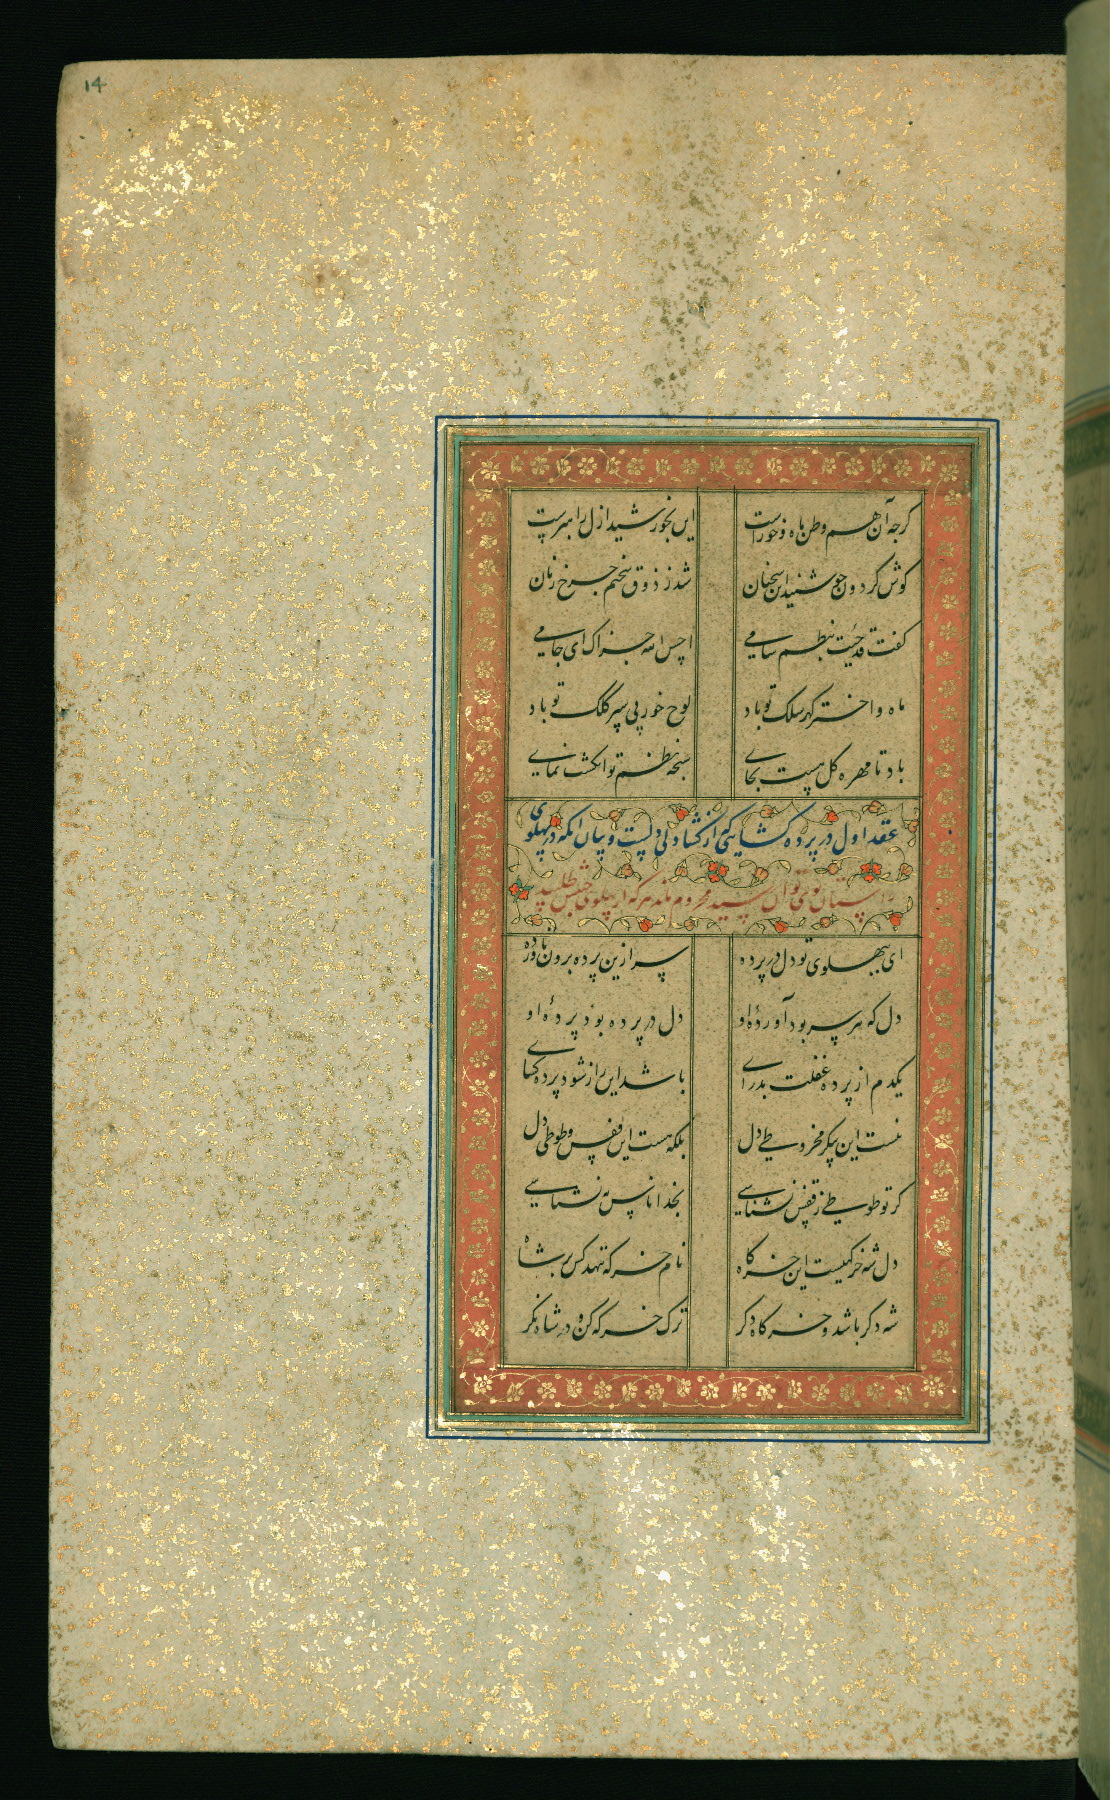 ۱۴
کرجه آن هم وطن ماه و خورست این بخورشید ازل راهبرست
کوش کردون جو شنید این سخنان شد ز ذوق سخنم جرخ زنان
کفت قد جئت بنظم سامی احسن الله جزاک ای جامی
ماه و اختر کهر سلک تو باد لوح خور پی سپر کلک تو باد
باد تا مهره کل هست بجای سبحه نظم تو انکشت نمای
عقد اول در پرده کشایی از کشاد دلی دلست و بیان انکه در پهلوی
راستان بوی توان شنید محروم ماند هر که از پهلوی خویش طلبید
ای بپهلوی تو دل در پرده سر ازین پرده برون ناورده
دل که هر سر بود آورده او دل در پرده بود پرده او
یکدم از پرده غفلت بدرای باشد این راز شود پرده کشای
نیست این پیکر مخروطی دل بلکه هست این قفس و طوطی دل
کر تو طوطی ز قفس نشناسی بخدا ناس نه نسناسی
دل شه خرکهیست این خرکاه نام خرکه ننهد کس بر شاه
شه دکر باشد و خرکاه دکر ترک خرکه کن و در شاه نکر